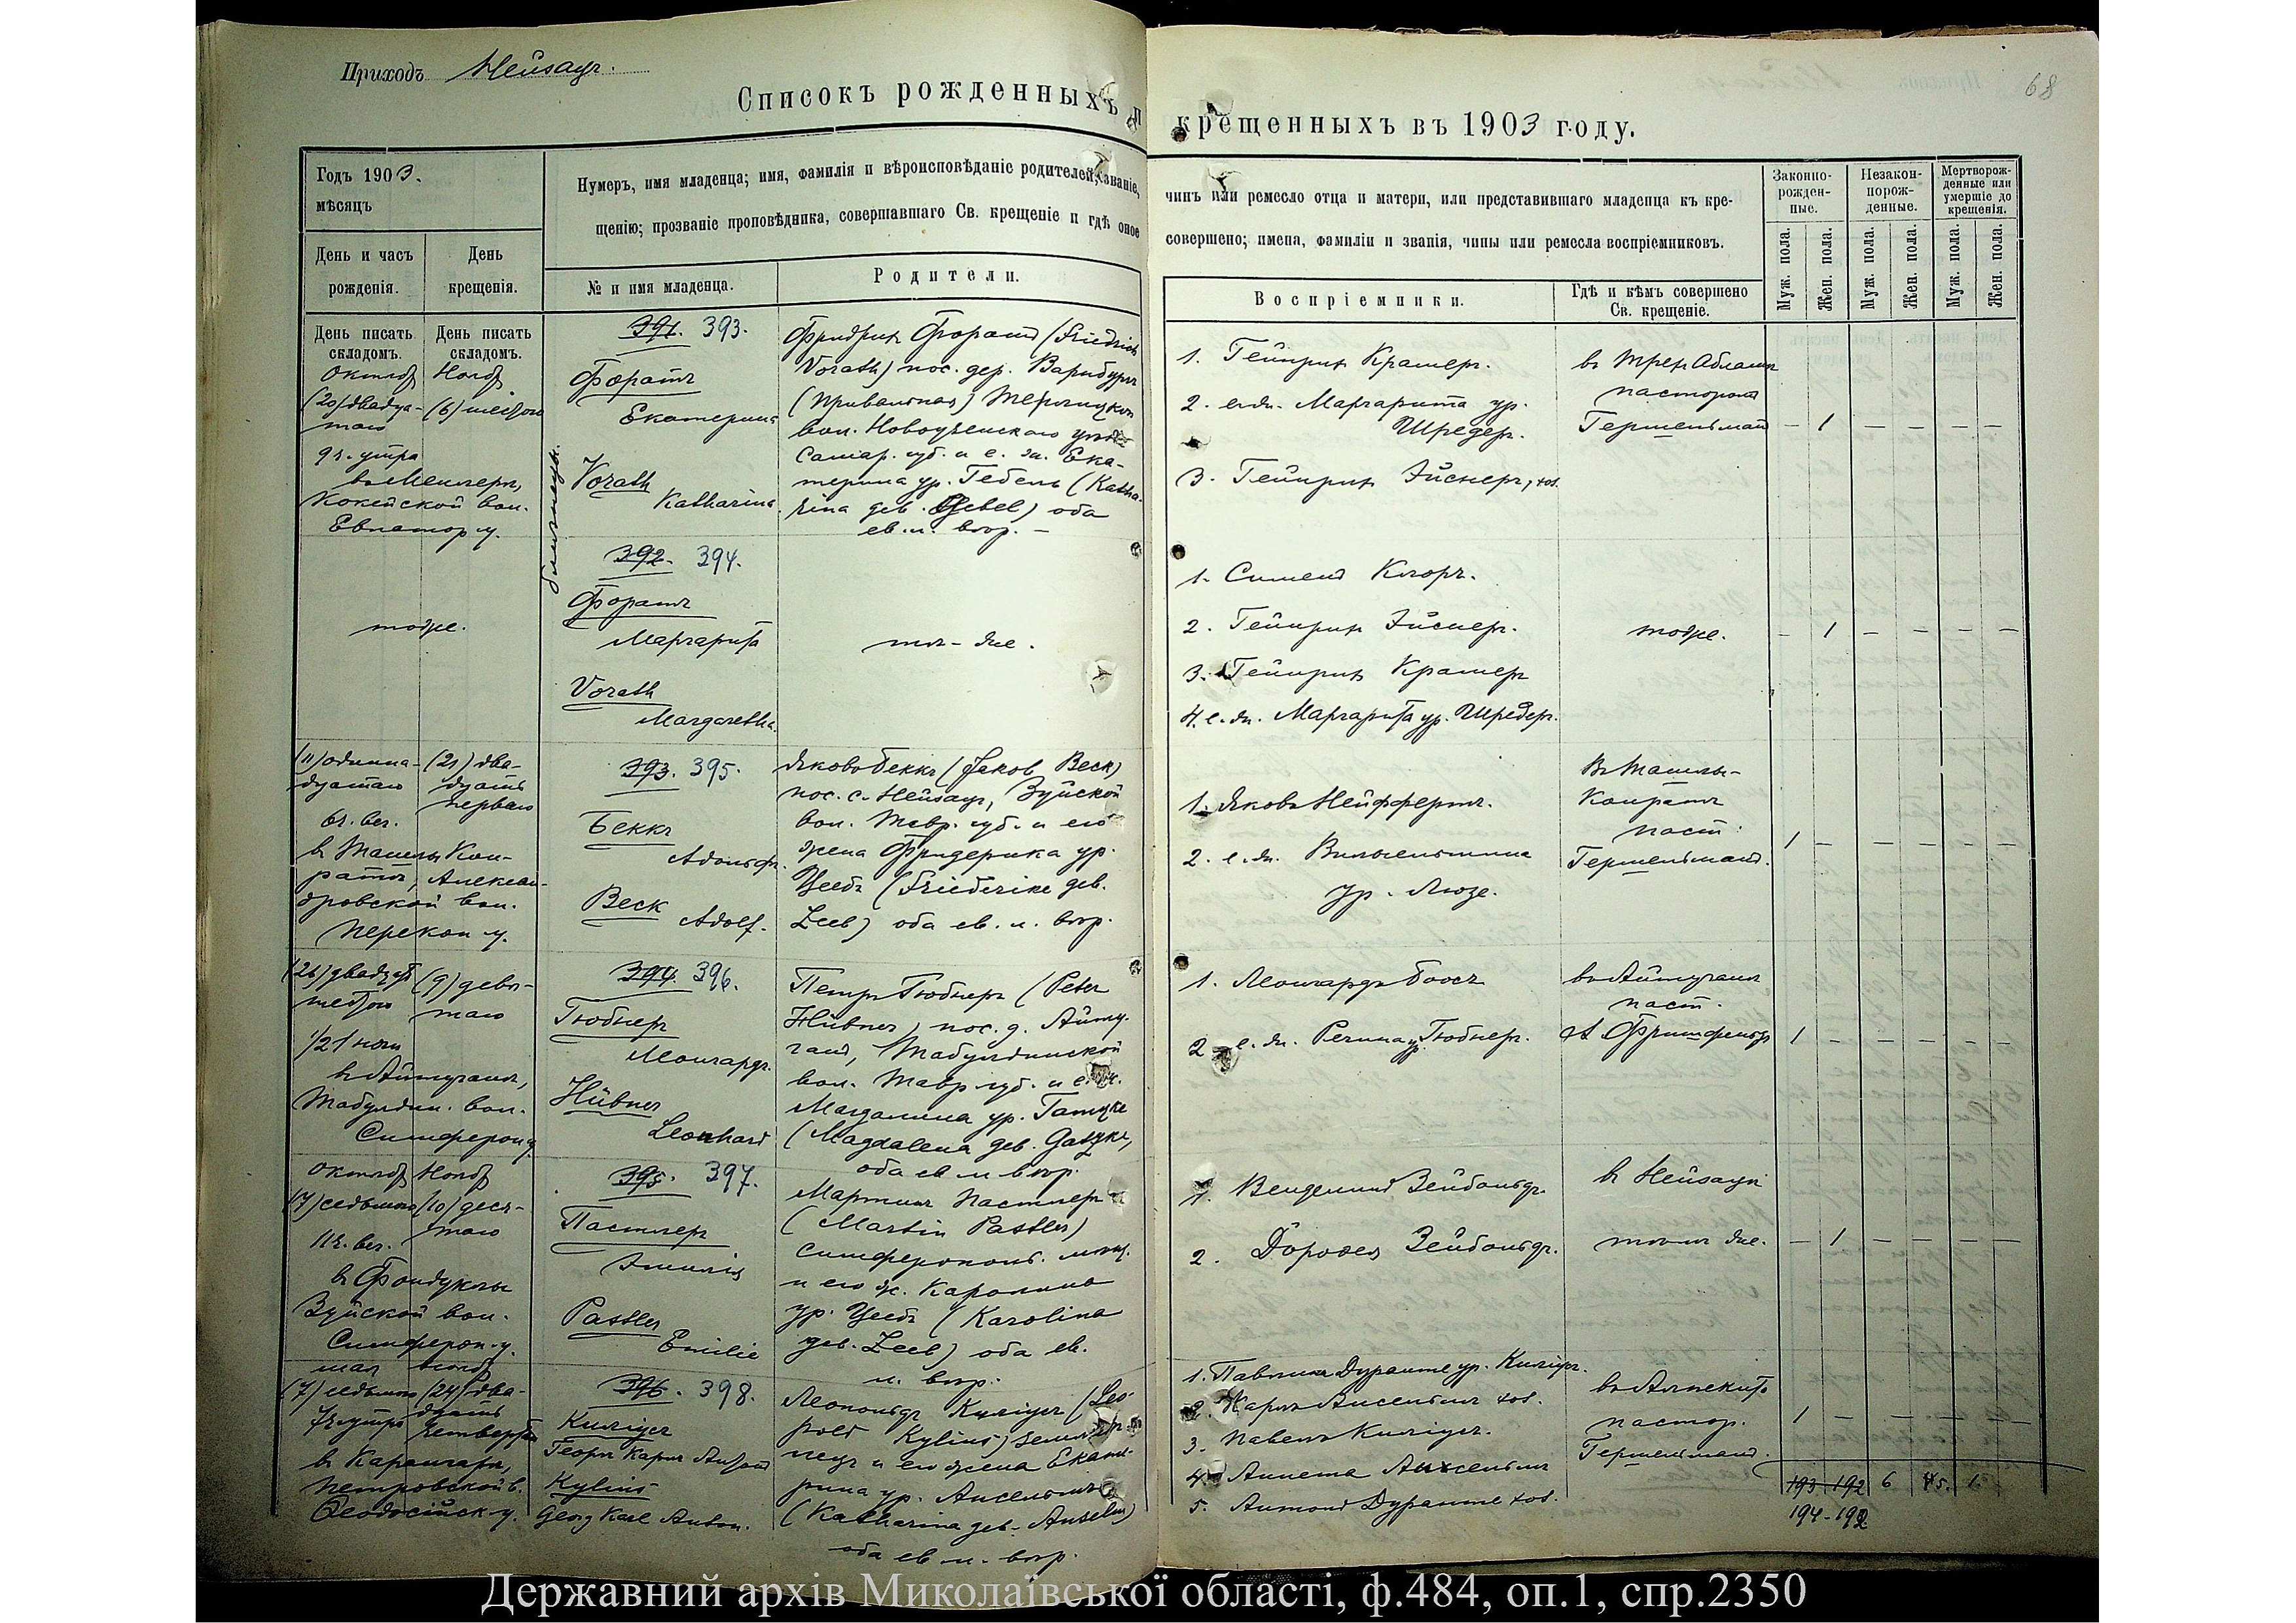 Приходъ Нейзацъ.
Списокъ рожденныхъ и
крещенныхъ въ 1903 году.
68
Годъ 1903.
мѣсяцъ
День и часъ
рожденія.
День
крещенія.
Нумеръ, имя младенца; имя, фамилія и вѣроисповѣданіе родителей, званіе,
щенію; прозваніе проповѣдника, совершавшаго Св. крещеніе и гдѣ оное
чинъ или ремесло отца и матери, или представившаго младенца къ кре-
совершено; имена, фамиліи и званія, чины или ремесла воспріемниковъ.
№ и имя младенца.
Родители.
Воспріемники.
Гдѣ и кѣмъ совершено
Св. крещеніе.
Законно-
рожден-
ные.
Незакон-
норож-
денные.
Мертворож-
денные или
умершіе до
крещенія.
Муж. пола.
Жен. пола.
Муж. пола.
Жен. пола.
Муж. пола.
Жен. пола.
День писать
складомъ.
День писать
складомъ.
Октяб
(20) двадца-
таго
9 ч. утра
Кокейской вол.
Евпатор у.
Нояб
(6) шестого
близнецы.
391. 393.
Форатъ
Екатерина
Vorath
Katharina.
Фридрихъ Форатъ (Friedrich
Vorath) пос. дер. Варибургъ
(Привальная)
вол. Новоузенскаго уѣзда
Самар. губ. и е. ж. Ека-
терина ур. Гебель (Katha-
rina geb. Gebel) оба
ев. л. вѣр. —
1. Гейнрихъ Крамеръ.
2. его ж. Маргарита ур.
Шредеръ.
3. Гейнрихъ Эйснеръ, хол.
пасторомъ
Гершельманъ
— 1 — — — —
тоже.
392. 394.
Форатъ
Маргарита
Vorath
Margaretha.
тѣ-же.
1. Симонъ Клоръ.
2. Гейнрихъ Эйснеръ.
3. Гейнрихъ Крамеръ
4. е. ж. Маргарита ур. Шредеръ.
тоже.
— 1 — — — —
(11) одинна-
дцатаго
6 ч. веч.
въ Ташлы Кон-
ратъ, Алексан-
дровской вол.
Перекоп у.
(21) два-
дцать
перваго
393. 395.
Беккъ
Адольфъ.
Beck
Adolf.
Яковъ Беккъ (Jakob Beck)
пос. с. Нейзацъ, Зуйской
вол. Тавр. губ. и его
жена Фридерика ур.
Цеебъ (Friederike geb.
Zeeb) оба ев. л. вѣр.
1. Яковъ Нейффертъ.
2. е. ж. Вильгельмина
ур. Люзе.
Въ Ташлы-
Конратъ
паст.
Гершельманъ.
1 — — — — —
(26) двадцать
шестого
1/2 1 ночи
въ Айтуганъ,
Табулдин. вол.
Симфероп у.
(9) девя-
таго
394. 396.
Гюбнеръ
Леонгардъ.
Hübner
Leonhard
Петръ Гюбнеръ (Peter
Hübner) пос. д. Айту-
ганъ, Табулдинской
вол. Тавр губ. и е. ж.
Магдалина ур. Гатцке
(Magdalena geb. Gatzke,
оба ев л вѣр.
1. Леонгардъ Боосъ
2. е. ж. Регина ур. Гюбнеръ.
въ Айтуганъ
паст.
1 — — — — —
Октяб
(7) седьмого
11 ч. веч.
въ Фундуклы
Зуйской вол.
Симфероп. у.
Нояб
(10) деся-
таго
395. 397.
Пастлеръ
Эмилія
Pastler
Emilie
Мартинъ Пастлеръ
(Martin Pastler)
Симферопол. мѣщ.
и его ж. Каролина
ур. Цеебъ (Karolina
geb. Zeeb) оба ев.
л. вѣр.
1. Венделинъ Зейбольдъ.
2. Доротея Зейбольдъ.
въ Нейзацъ
тѣмъ же.
— 1 — — — —
мая
(7) седьмого
7 ч. утра
Петровской в.
Ѳеодосійск у.
нояб
(24) два-
дцать
четвертаго
396. 398.
Килигсъ
Георгъ Карлъ Антонъ
Kylius
Georg Karl Anton.
(Leo-
pold Kylius) землевла-
лецъ и его жена Екате-
рина ур. Ансельмъ
(Katharina geb. Anselm)
оба ев л. вѣр.
2. Карлъ Ансельмъ хол.
4. Аннета Ансельмъ
5. Антонъ Дуранте хол.
пастор.
Гершельманъ.
1 — — — — —
193 192 6 5. 1.
194 - 192
Державний архів Миколаївської області, ф.484, оп.1, спр.2350